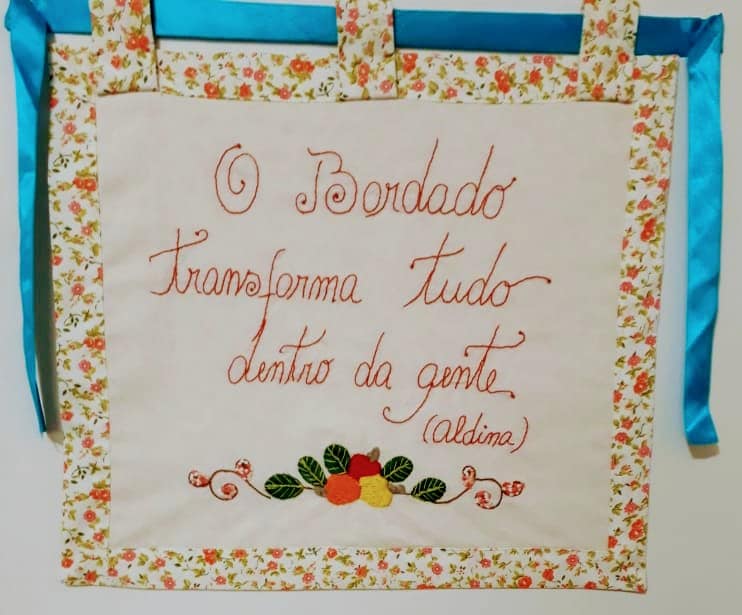 O Bordado
transforma tudo
dentro da gente
(Aldina)